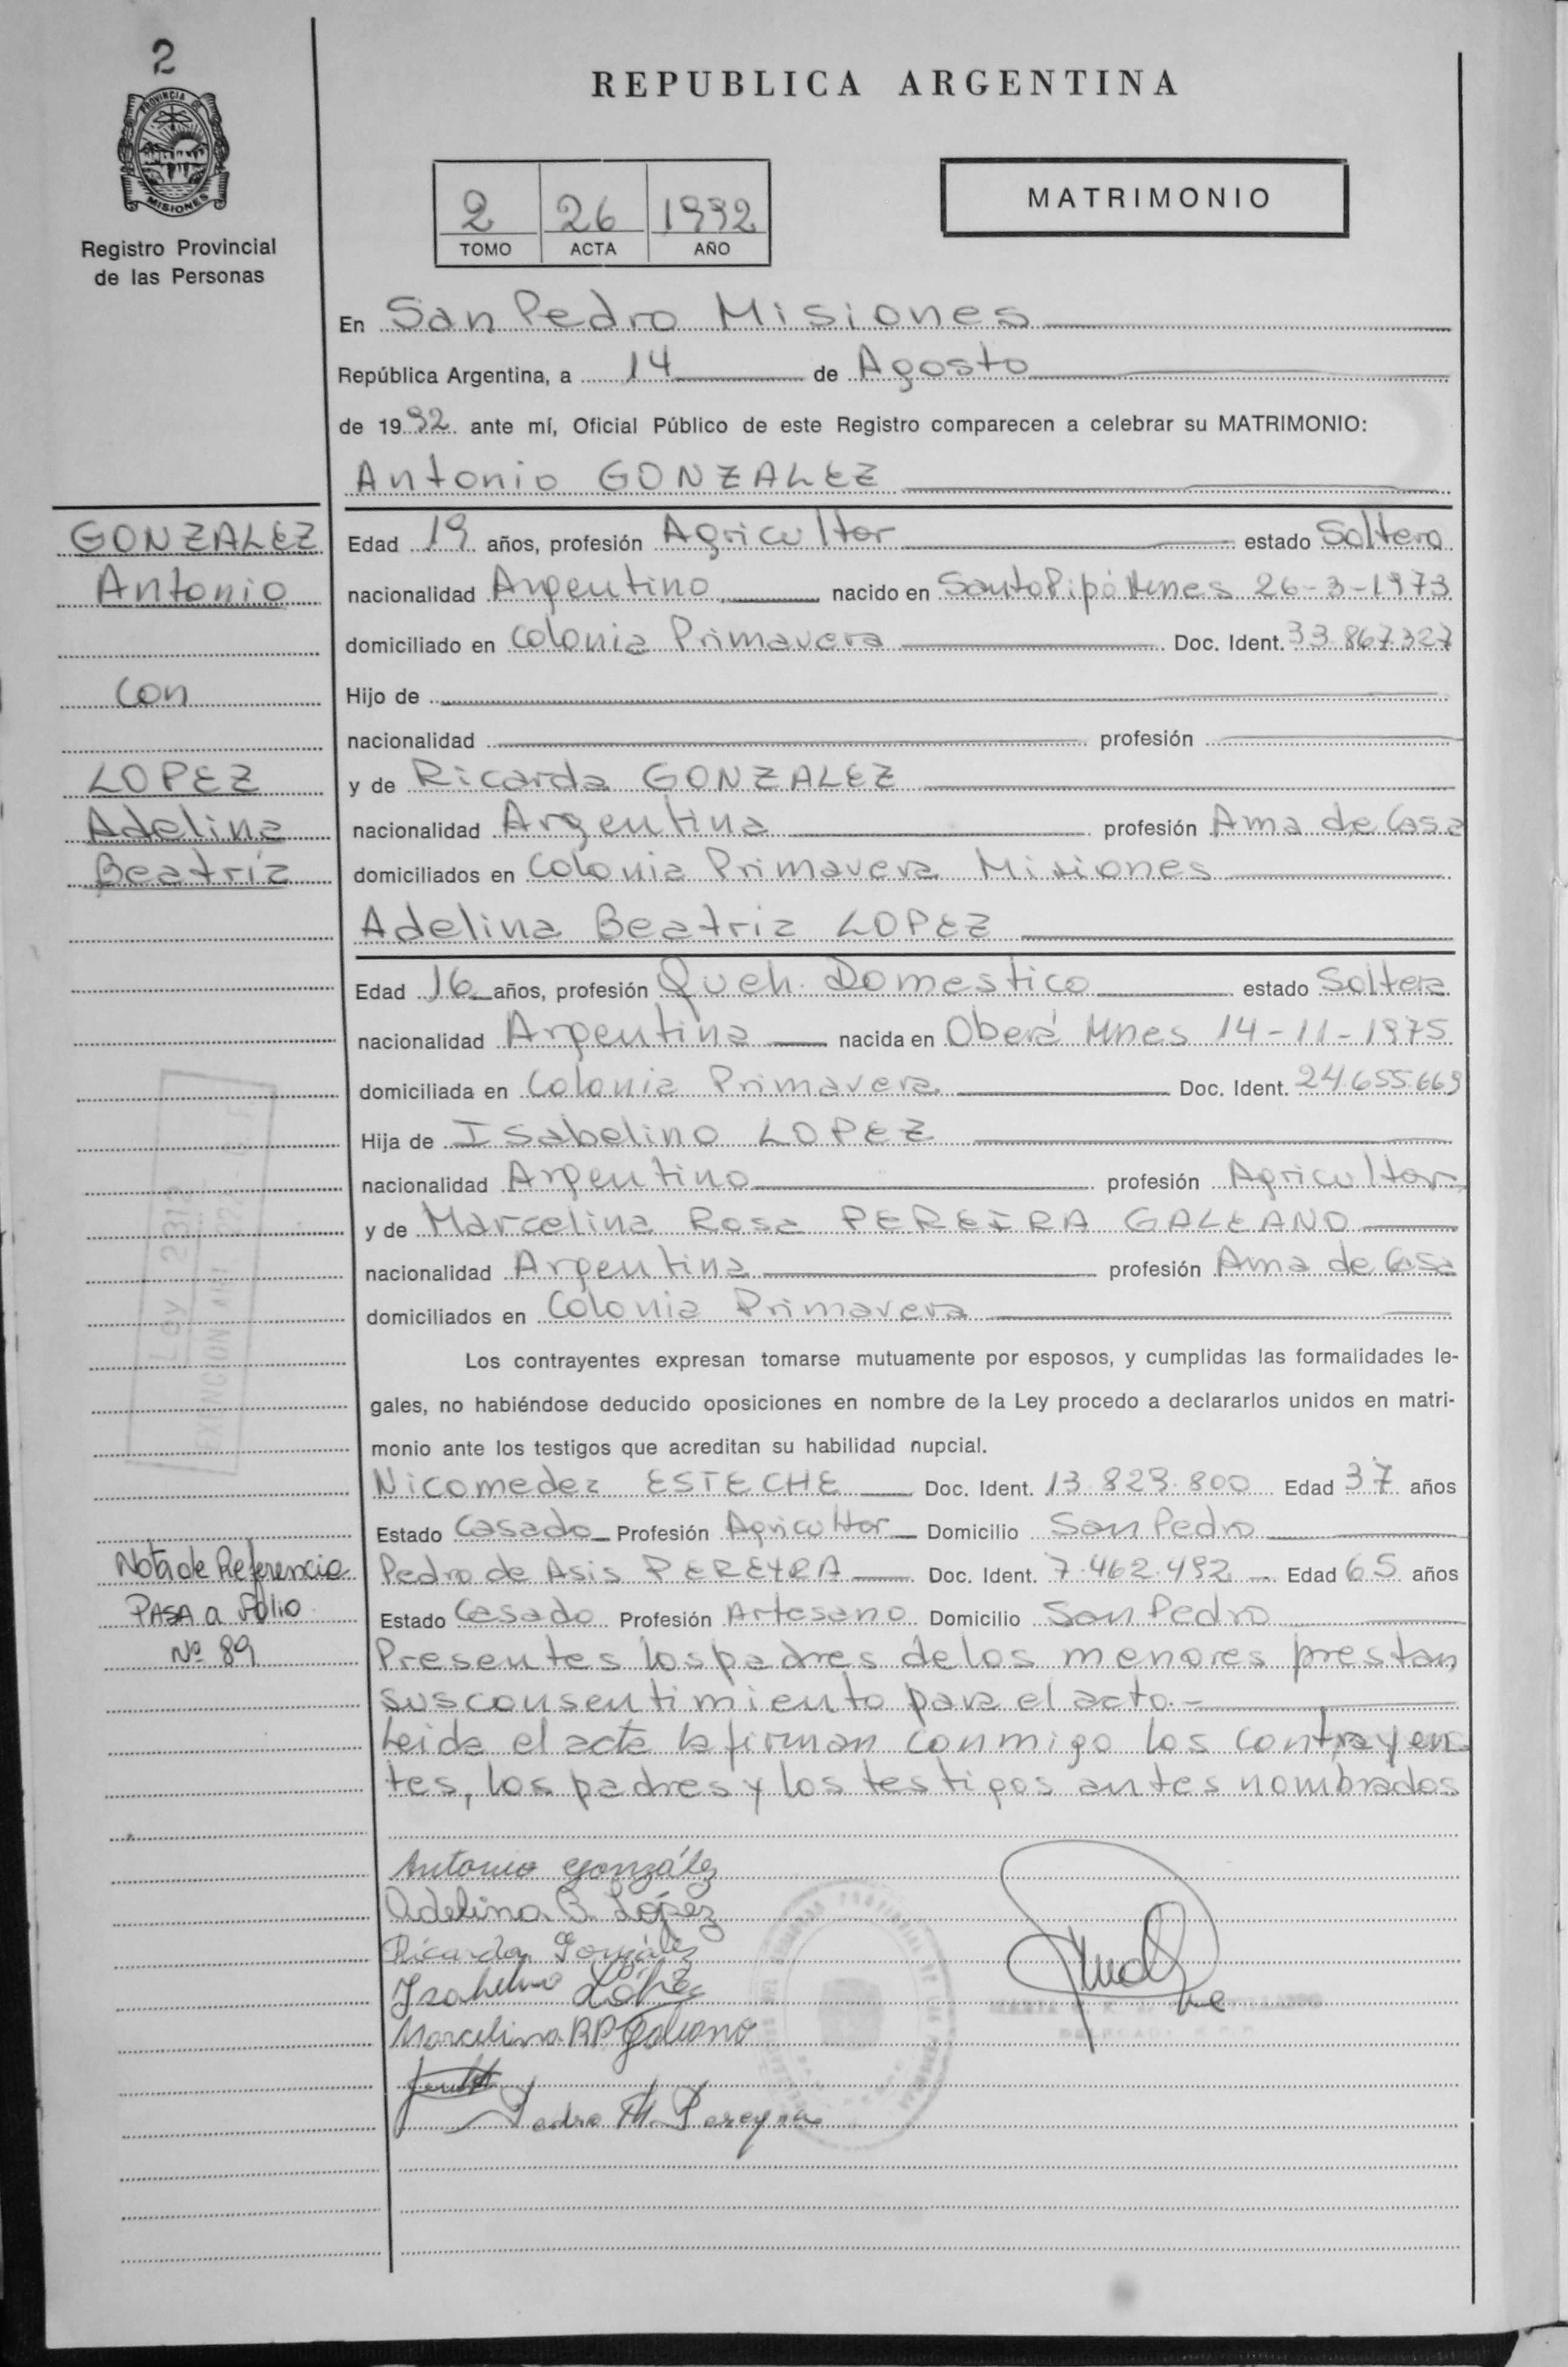 2
PROVINCIA DE
MISIONES
Registro Provincial
de las Personas
REPUBLICA ARGENTINA
2 26 1992
TOMO ACTA AÑO
MATRIMONIO
En San Pedro Misiones
República Argentina, a 14 de Agosto
de 1992 ante mí, Oficial Público de este Registro comparecen a celebrar su MATRIMONIO:
Antonio GONZALEZ
GONZALEZ
Antonio
con
LOPEZ
Adelina
Beatriz
Edad 19 años, profesión Agricultor estado Soltero
nacionalidad Argentino nacido en Santo Pipó Mnes 26-3-1973
domiciliado en Colonia Primavera Doc. Ident. 33.867.327
Hijo de
nacionalidad profesión
y de Ricarda GONZALEZ
nacionalidad Argentina profesión Ama de Casa
domiciliados en Colonia Primavera Misiones
Adelina Beatriz LOPEZ
Edad 16 años, profesión Queh. Domestico estado Soltera
nacionalidad Argentina nacida en Oberá Mnes 14-11-1975
domiciliada en Colonia Primavera Doc. Ident. 24.655.669
Hija de Isabelino LOPEZ
nacionalidad Argentino profesión Agricultor
y de Marcelina Rosa PEREIRA GALEANO
nacionalidad Argentina profesión Ama de Casa
domiciliados en Colonia Primavera
Los contrayentes expresan tomarse mutuamente por esposos, y cumplidas las formalidades le-
gales, no habiéndose deducido oposiciones en nombre de la Ley procedo a declararlos unidos en matri-
monio ante los testigos que acreditan su habilidad nupcial.
Nicomedez ESTECHE Doc. Ident. 13.829.800 Edad 37 años
Estado Casado Profesión Agricultor Domicilio San Pedro
Pedro de Asis PEREYRA Doc. Ident. 7.462.492 Edad 65 años
Estado Casado Profesión Artesano Domicilio San Pedro
Nota de Referencia
PASA a Folio
Nº 89
Presentes los padres de los menores prestan
sus consentimiento para el acto.-
Leida el acta la firman conmigo los contrayen
tes, los padres y los testigos antes nombrados
Antonio González
Adelina B. López
Ricarda González
Isabelino López
Marcelina R P Galeano
Pedro M. Pereyra
Ley 2312
EXENCION